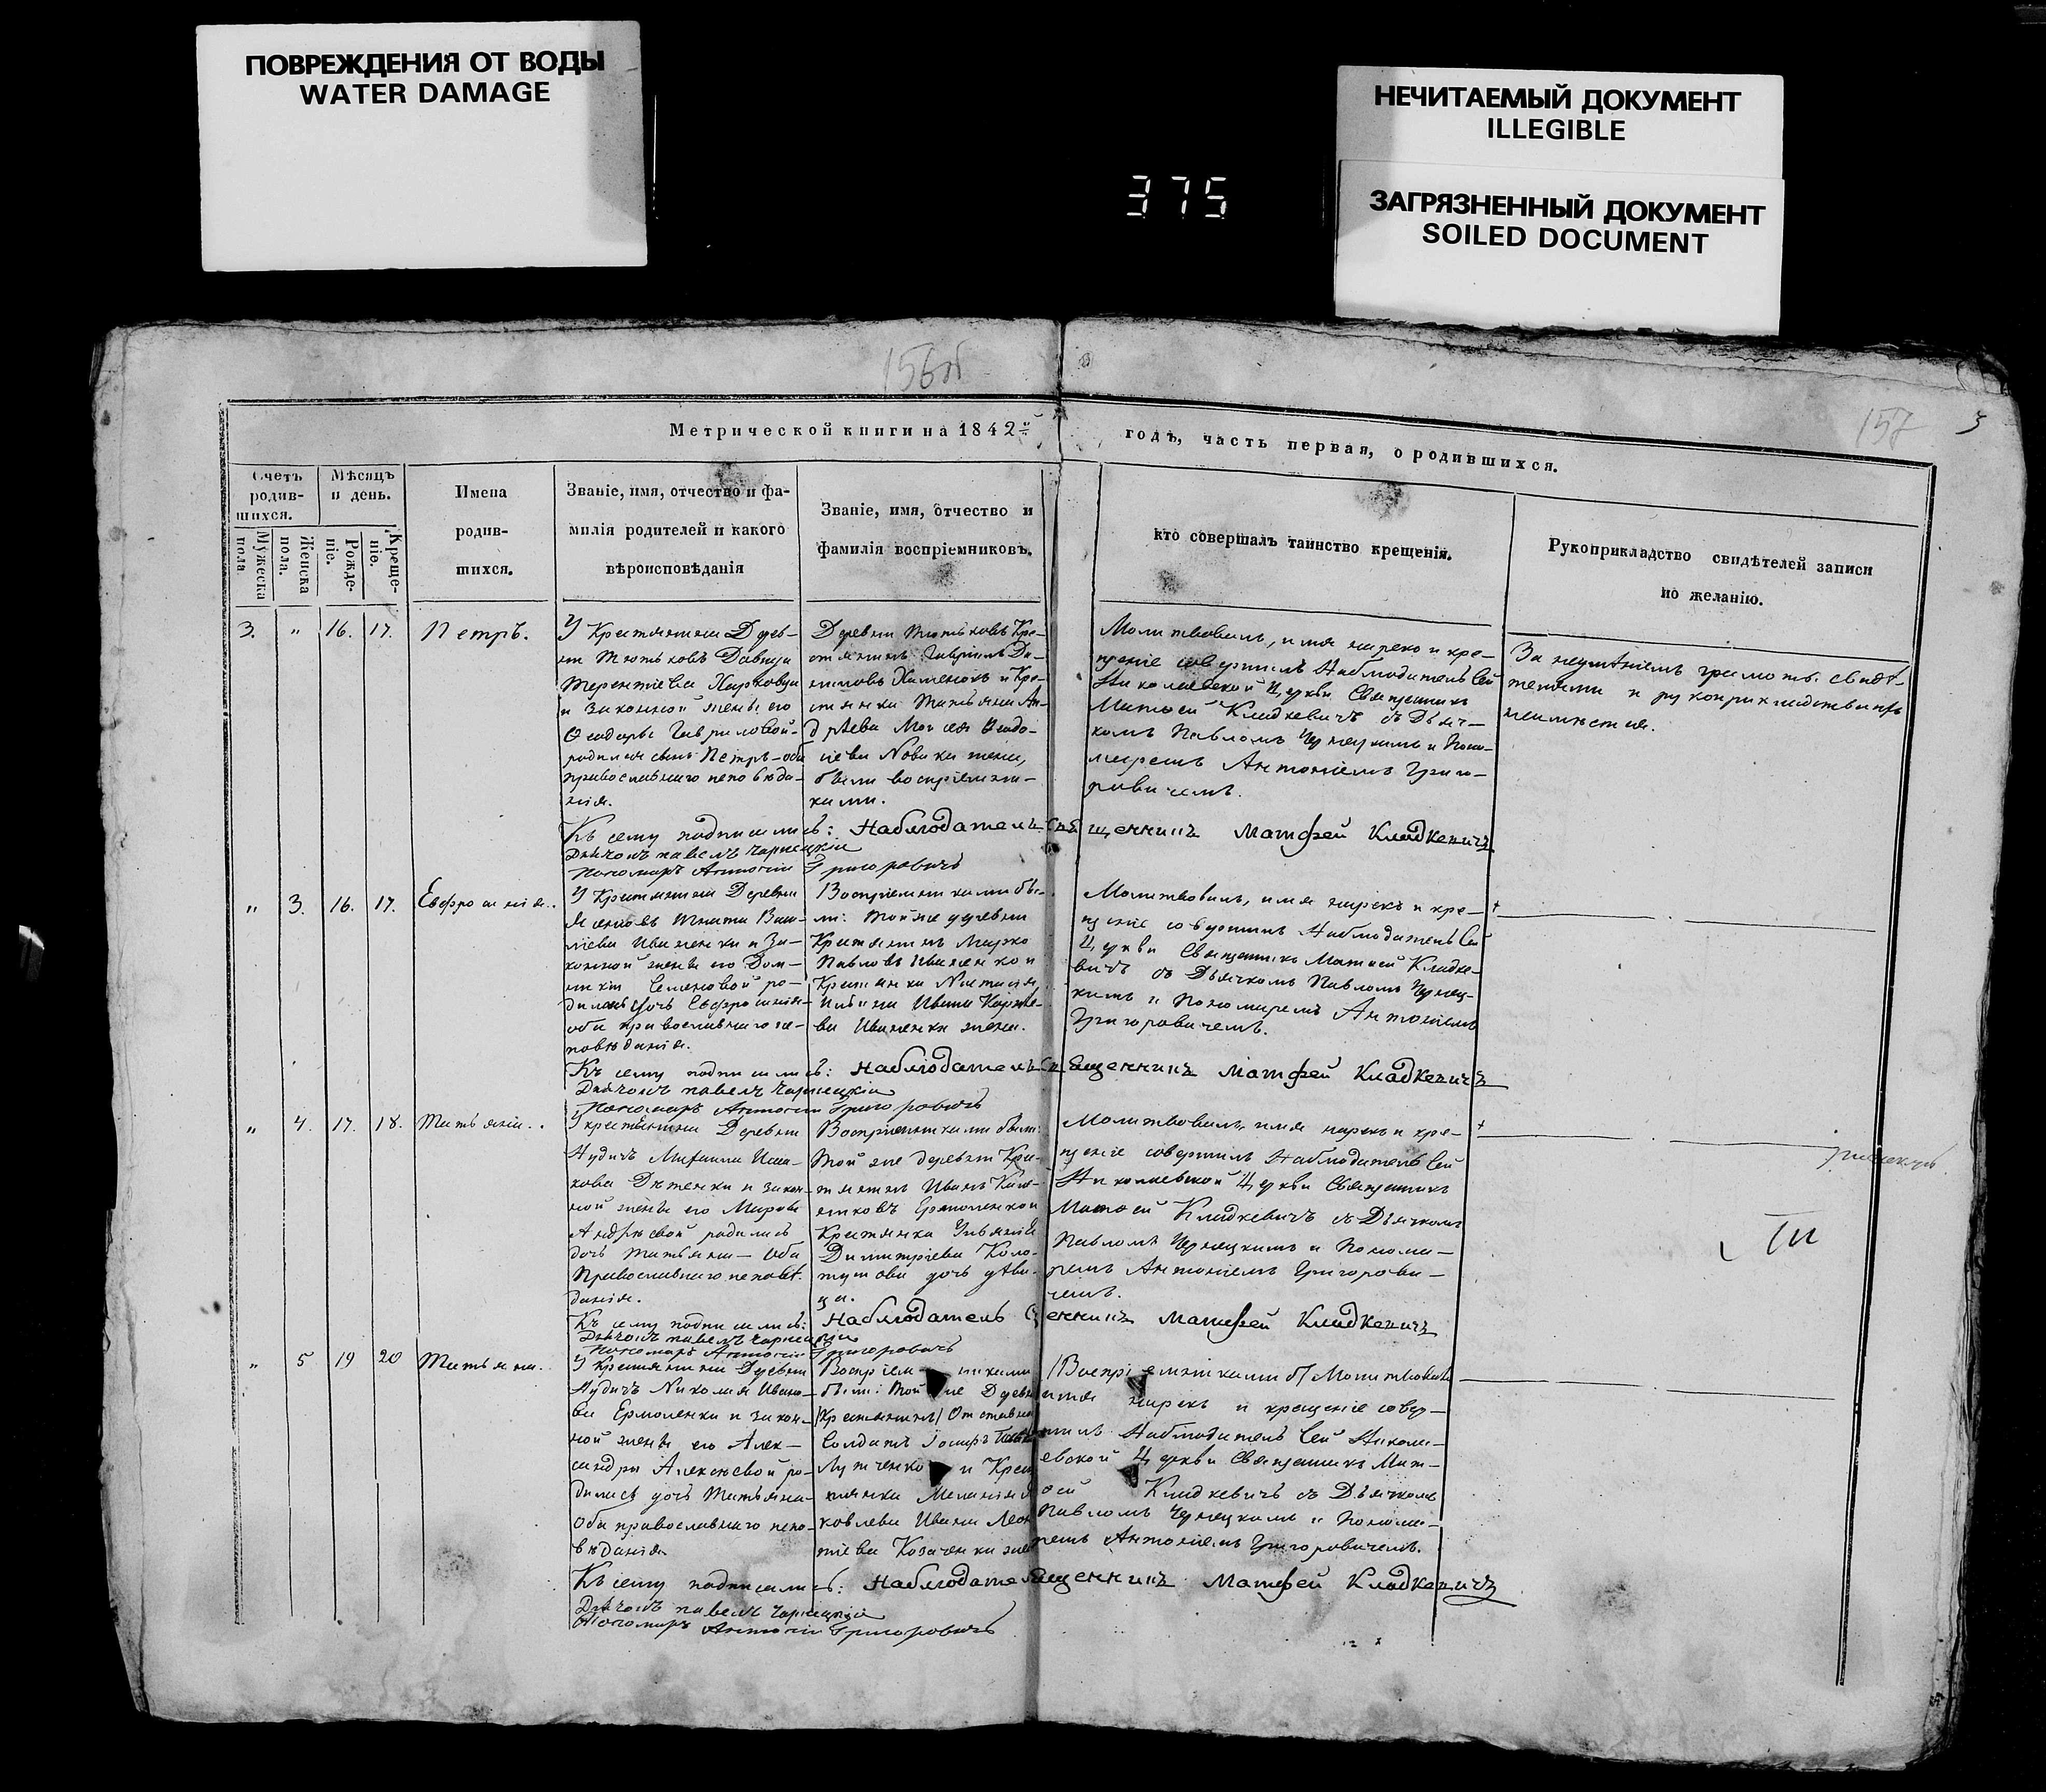 ПОВРЕЖДЕНИЯ ОТ ВОДЫ
WATER DAMAGE
НЕЧИТАЕМЫЙ ДОКУМЕНТ
ILLEGIBLE
ЗАГРЯЗНЕННЫЙ ДОКУМЕНТ
SOILED DOCUMENT
375
157
3
Метрической книги на 1842й годъ, часть первая, о родившихся.
Счетъ
родив-
шихся.
Мужеска
пола
Женска
пола.
Мѣсяцъ
и день.
Рожде-
ніе.
Креще-
ніе.
Имена
родив-
шихся.
Званіе, имя, отчество и фа-
милія родителей и какого
вѣроисповѣданія
Званіе, имя, отчество и
фамилія воспріемниковъ.
кто совершалъ таинство крещенія.
Рукоприкладство свидѣтелей записи
по желанію.
3. " 16. 17. Петръ.
У Крестьянина Дерев-
ни Тютьковъ Давида
Терентіева Харковца
и законной жены его
Ѳеодоры Гавриловой-
родился сынъ Петръ-оба
православнаго исповѣда-
нія.
Деревни Тютьковъ Кре-
стьянинъ Гавріилъ Да-
ниловъ Хименокъ и Кре-
стьянка Татьяна Ан-
дрѣева Моисея Ѳеодо-
сіева Новака жена,
были воспріемни-
ками.
Молитвовалъ, имя нареко и кре-
щеніе совершилъ Наблюдатель Сей
Николаевской Церкви Священникъ
Матѳей Кладкевичъ съ Дьяч-
комъ Павломъ Чернецкимъ и Поно-
маремъ Антоніемъ Григо-
ровичемъ.
За неумѣніемъ грамоты свидѣ-
телями и рукоприкладства не
имѣется.
Къ сему подписались: Наблюдатель Священникъ Матфей Кладкевичъ
Дьячокъ павелъ Чарнецкій
Пономарь Антоній Григоровичъ
" 3. 16. 17. Евфросинія.
У Крестьянина Деревни
Игната Васи-
ліева Иваненки и За-
конной жены его Дом-
никіи Семеновой ро-
дилась дочь Евфросинія-
оба православнаго ис-
повѣданія.
Воспріемниками бы-
ли: той же деревни
Крестьянинъ Марко
Павловъ Иваненко и
Крестьянка Настасія
Ивана
Иваненки жена.
Молитвовалъ, имя нарекъ и кре-
щеніе совершилъ Наблюдатель Сей
Церкви Священникъ Матѳей Кладке-
вичъ съ Дьячкомъ Павломъ Чернец-
кимъ и Пономаремъ Антоніемъ
Григоровичемъ.
Къ сему подписались: Наблюдатель Священникъ Матфей Кладкевичъ
Дьячокъ павелъ Чарнецкій
Пономарь Антоній Григоровичъ
" 4. 17. 18. Татьяна.
У крестьянина Деревни
Нудичъ Михаила Иса-
кова Дѣтенка и закон-
ной жены его Марфы
Андрѣевой родилась
дочь Татьяна- Оба
Православнаго исповѣ-
данія.
Воспріемниками были:
Той же деревни Кре-
стьянинъ Иванъ
Ермоленко и
Крестьянка Ульянія
Димитріева Коло-
тушова дочь дѣви-
ца.
Молитвовалъ, имя нарекъ и кре-
щеніе совершилъ Наблюдатель Сей
Николаевской Церкви Священникъ
Матѳей Кладкевичъ съ Дьячкомъ
Павломъ Чернецкимъ и Понома-
ремъ Антоніемъ Григорови-
чемъ.
Къ сему подписались: Наблюдатель Священникъ Матфей Кладкевичъ
Дьячокъ павелъ Чарнецкій
Пономарь Антоній Григоровичъ
" 5 19 20 Татьяна.
У Крестьянина Деревни
Нудичъ Николая Ивано-
ва Ермоленки и закон-
ной жены его Алек-
сандры Алексѣевой ро-
дилась дочь Татьяна-
Оба православнаго испо-
вѣданія.
Воспріемниками
были: Той же Деревни
/Крестьянинъ/ Отставной
Солдатъ Іосифъ
Лутченко и Крес-
тьянка Меланія Я-
ковлева Ивана Леон-
тіева Козаченки жена
/Воспріемниками б/ Молитвовалъ
имя нарекъ и крещеніе совер-
шилъ Наблюдатель Сей Никола-
евской Церкви Священникъ Мат-
ѳей Кладкевичъ съ Дьячкомъ
Павломъ Чернецкимъ и Понома-
ремъ Антоніемъ Григоровичемъ.
Къ сему подписались: Наблюдатель Священникъ Матфей Кладкевичъ
Дьячокъ павелъ Чарнецкій
Пономарь Антоній Григоровичъ